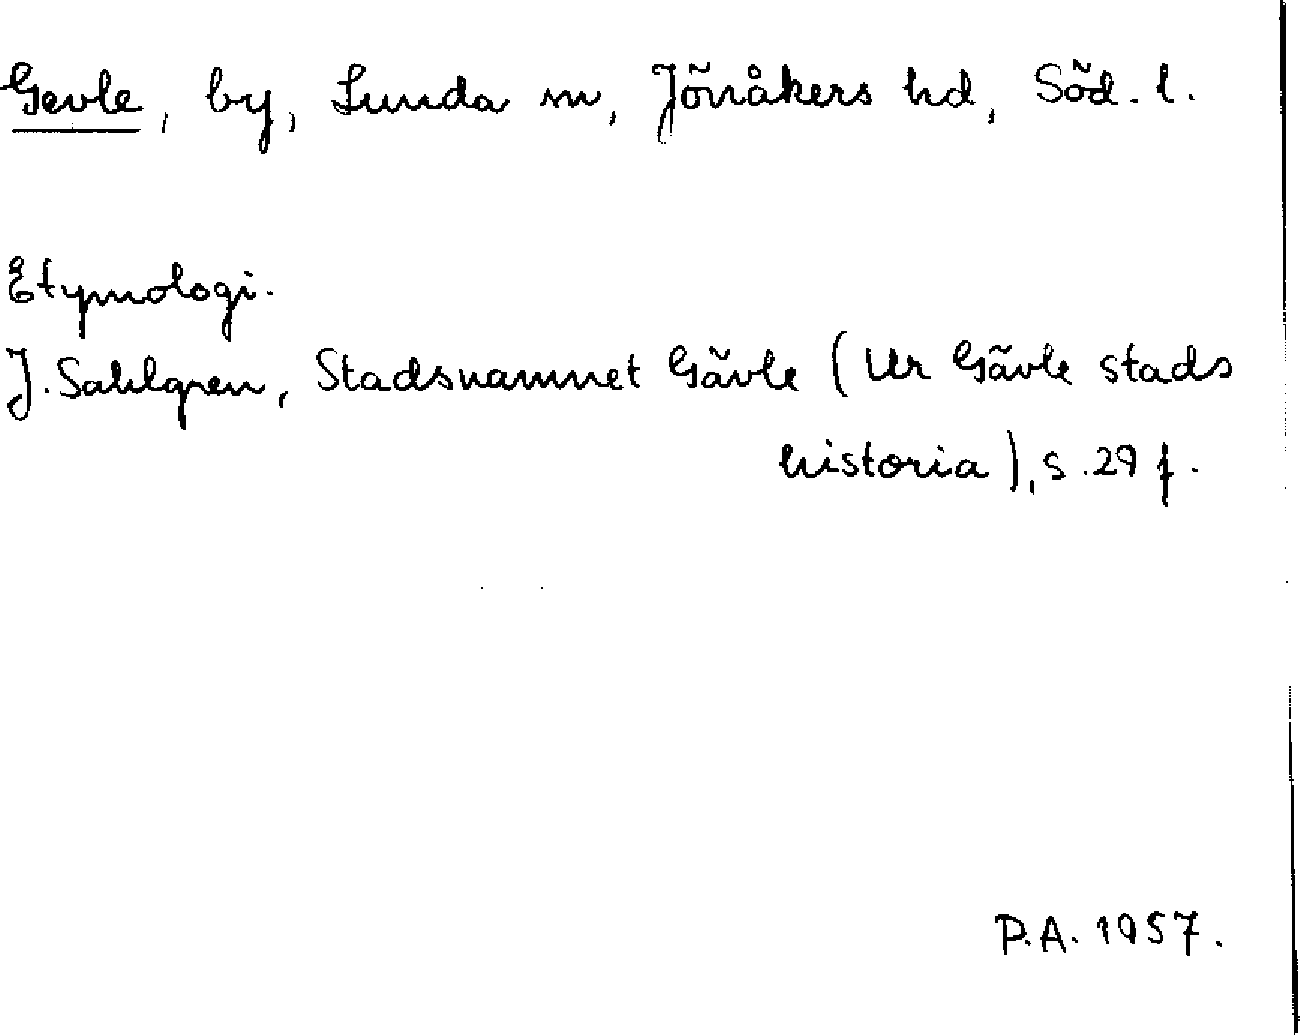 Gevle, by, Lunda sn, Jönåkers hd, Söd. l.
Etymologi.
J. Sahlgren, Stadsnamnet Gävle (Ur Gävle stads
historia), s. 29 f.
P.A. 1957.